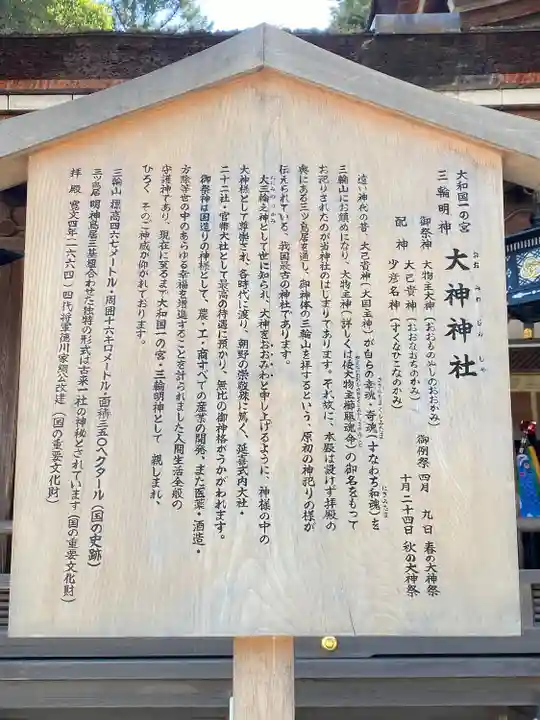 大和国一の宮
三輪明神 大神神社
おおみわじんじゃ
御祭神 大物主大神(おおものぬしのおおかみ) 御例祭 四月 九日 春の大神祭
配神 大己貴神(おおなむちのかみ) 十月二十四日 秋の大神祭
少彦名神(すくなひこなのかみ)
遠い神代の昔、大己貴神(大国主神)が自らの幸魂・奇魂(すなわち和魂)を
三輪山にお鎮めになり、大物主神(詳しくは倭大物主櫛𤭖魂命)の御名をもって
お祀りされたのが当神社のはじまりであります。それ故に、本殿は設けず拝殿の
奥にある三ツ鳥居を通し、御神体の三輪山を拝するという、原初の神祀りの様が
伝えられている、我国最古の神社であります。
大三輪之神として世に知られ、大神をおおみわと申し上げるように、神様の中の
大神様として尊崇され、各時代に渡り、朝野の崇敬殊に篤く、延喜式内大社・
二十二社・官幣大社として最高の待遇に預かり、無比の御神格がうかがわれます。
御祭神は国造りの神様として、農・工・商すべての産業の開発、また医薬・酒造・
方除等世の中のあらゆる幸福を増進することを計られました人間生活全般の
守護神であり、現在に至るまで大和国一の宮・三輪明神として 親しまれ、
ひろく、そのご神威が仰がれております。
三輪山 標高四六七メートル・周囲十六キロメートル・面積三五〇ヘクタール(国の史跡)
三ツ鳥居 明神鳥居三基組合わせた独特の形式は古来一社の神秘とされています(国の重要文化財)
拝殿 寛文四年(一六六四)四代将軍徳川家綱公改建(国の重要文化財)